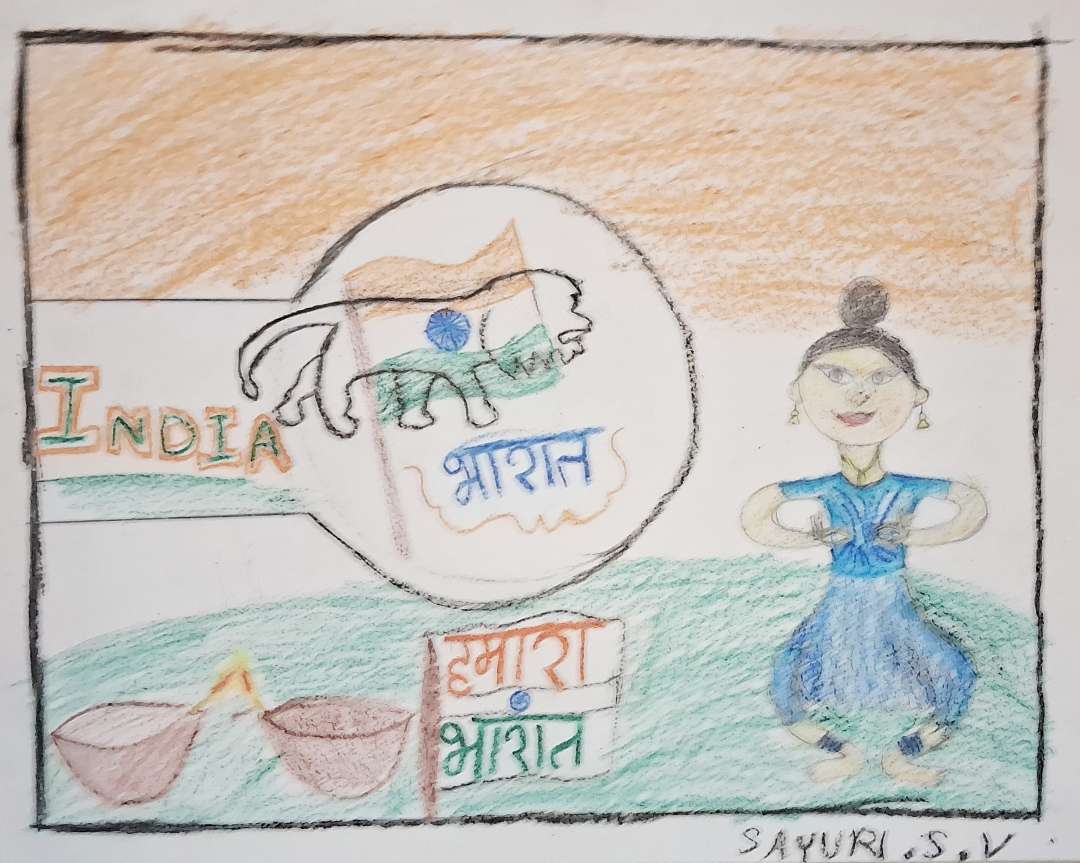 INDIA
भारात
हमारा
भारात
SAYURI.S.V.